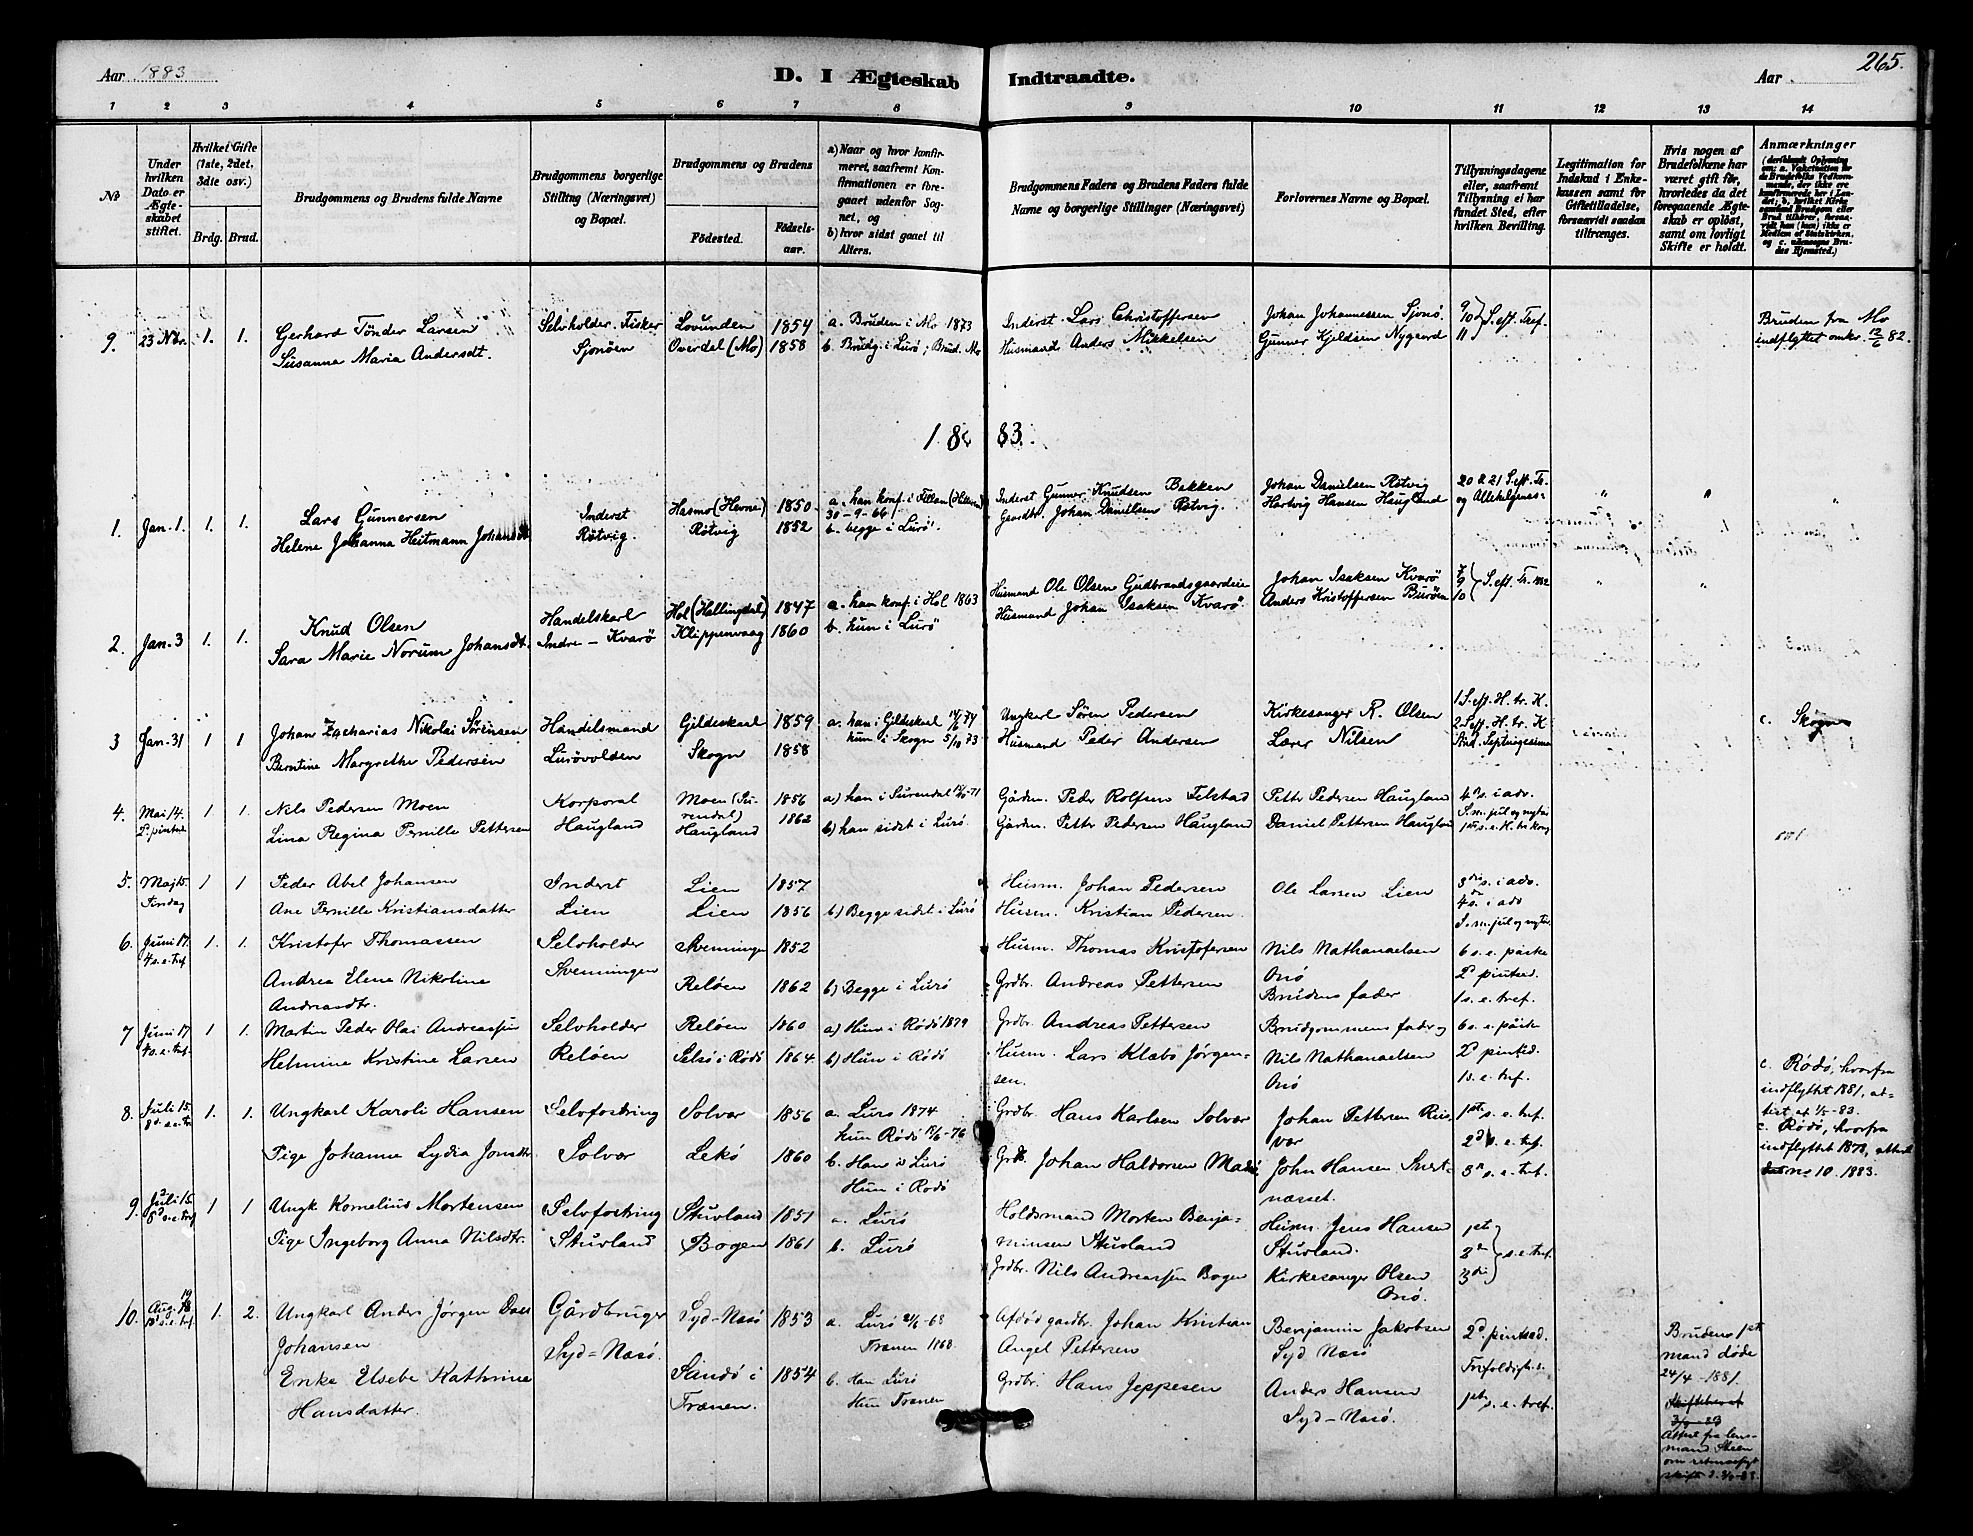 Aar 1883
D. I Ægteskab Indtraadte.
Aar
265.
1 2 3 4 5 6 7 8 9 10 11 12 13 14
№
Under hvilken Dato er Ægteskabet stiftet.
Hvilket Gifte (1ste, 2det, 3die osv.)
Brdg. Brud.
Brudgommens og Brudens fulde Navne
Brudgommens borgerlige Stilling (Næringsvei) og Bopæl.
Brudgommens og Brudens
Födested.
Födselsaar.
a) Naar og hvor konfirmeret, saafremt Konfirmationen er foregaaet udenfor Sognet, og
b) hvor sidst gaaet til Alters.
Brudgommens Faders og Brudens Faders fulde Navne og borgerlige Stillinger (Næringsvei)
Forlovernes Navne og Bopæl.
Tillysningsdagene eller, saafremt Tillysning ei har fundet Sted, efter hvilken Bevilling.
Legitimation for Indskud i Enkekassen samt för Giftetilladelse, forsaavidt saadan tiltrænges.
Hvis nogen af Brudefolkene har været gift för, hvorledes da det foregaaende Ægteskab er oplöst, samt om lovligt Skifte er holdt.
Anmærkninger
9. 23 Nbr. 1. 1.
Gerhard Tönder Larsen
Susanna Maria Andersdt.
Selvholder. Fisker
Sjonöen
Lovunden 1854
Overdal (Mo) 1858
a. Bruden i Mo 1873
b. Brudg. i Lurö; Brud. Mo
Inderst Lars Christoffersen
Husmand Anders Mikkelsen
Johan Johannessen Sjonö.
Gunner Kjeldsen Nygaard
9 10 11 S. eft. Tref.
Bruden fra Mo
indflyttet omkr. 12/6 82.
1883.
1. Jan. 1. 1. 1.
Lars Gunnersen
Helene Johanna Heitmann Johansdt
Inderst
Rötvig.
Hasmo (Hevne) 1850
Rötvig 1852
a. han konf. i Fillan (Hitteren)
30-9-66
b. begge i Lurö.
Inderst Gunner Knudsen Bekken
Gaardbr. Johan Danielsen Rötvig.
Johan Danielsen Rötvig
Hartvig Hansen Haugland
20 & 21 S. eft. Tr.
og Allehelgenes-
2. Jan. 3 1. 1.
Knud Olsen
Sara Marie Norum Johansdt.
Handelskarl
Indre-Kvarö
Hol (Hallingdal) 1847
Klippenvaag 1860
a. han konf. i Hol 1863
b. hun i Lurö
Husmand Ole Olsen Gudbrandsgaardeie
Husmand Johan Isaksen Kvarö.
Johan Isaksen Kvarö
Anders Kristoffersen Buröen
9 10 S. eft. Tr. 1882
3 Jan. 31 1 1
Johan Zacharias Nikolai Sörensen
Berntine Margrethe Pedersen
Handelsmand
Lurövolden
Gildeskaal 1859
Skogn 1858
a. han i Gildeskaal 14/6 74
hun i Skogn 5/10 73
Ungkarl Sören Pedersen
Husmand Peder Andersen
Kirkesanger R. Olsen
Lærer Nilsen
1 S. eft. H. tr. K.
2 S. eft. H. tr. K
Snd. Septuagesima
c. Skogn
4. Mai 14. 1 1
2. pintsed
Nils Pedersen Moen
Lina Regina Pernille Pettersen
Korporal
Haugland
Moen (Surendal) 1856
Haugland 1862
a) han i Surendal -71
b) han sidst i Lurö.
Gårdm. Peder Rolfsen Telstad
Gårdm. Petter Pedersen Haugland
Petter Pedersen Haugland
Daniel Pettersen Haugland
4 s. i adv.
S. m. jul og nytår
1ste s. e. H. tr. kong
5. Maj 15. 1 1
Tirsdag
Peder Abel Johansen
Ane Pernille Kristiansdatter
Inderst
Lien
Lien 1857
Lien 1856
b) Begge sidst i Lurö
Husm. Johan Pedersen
Husm. Kristian Pedersen.
Ole Larsen Lien
3die s. i adv.
4 s. i adv
S. m. jul og nytår
6. Juni 17. 1. 1.
4 s. e. tref.
Kristofer Thomassen
Andrea Elene Nikoline
Andreasdtr.
Selvholder
Svenningen
Svenningen 1852
Reløen 1862
b) Begge i Lurö
Husm. Thomas Kristofersen
Grdbr. Andreas Pettersen
Nils Nathanaelsen
Onö
Brudens fader
6 s. e. påske
2. pintsed.
1 s. e. tref.
7 Juni 17 1 1.
4 s. e. tref.
Martin Peder Olai Andreassen
Helmine Kristine Larsen
Selvholder
Reløen
Reløen 1860
Selsö i Rödö 1864
a) Hun i Rödö 1879
b) Hun i Rödö
Grdbr. Andreas Pettersen
Husm. Lars Klæbo Jörgensen.
Brudgommens fader og
Nils Nathanaelsen
Onö
6 s. e. påske
2. pintsed.
1 s. e. tref.
c. Rödö, hvorfra
indflyttet 1881, attist af -83.
8. Juli 15. 1. 1.
8d. s. e. tr
Ungkarl Karoli Hansen
Pige Johanne Lydia Jonsdtr
Selvfostring
Solvær
Solvær 1856
Lekö 1860
a. Lurö 1874
hun Rödö -76
b. Han i Lurö
Hun i Rödö
Grdbr. Hans Karlsen Solvær
Grdb. Johan Haldorsen
Johan Pettersen Risvær
John Hansen
næsset.
1ste s. e. tref.
2d s. e. tref.
3d s. e. tref.
c. Rödö, hvorfra
indflyttet 1878, attest
10. 1883.
9. Juli 15. 1 1
8d s. e. tref
Ungk Kornelius Mortensen
Pige Ingeborg Anna Nilsdtr.
Selvfostring
Stuvland
Stuvland 1851
Bogen 1861
a. Lurö
b. Lurö
Holdsmand Morten Benjaminsen Stuvland
Grdbr. Nils Andreassen Bogen
Husm. Jens Hansen
Stuvland.
Kirkesanger Olsen
Onö.
1st 2d 3di s. e. tref.
10. Aug. 19 1. 2.
Ungkarl Anders Jörgen Dass
Johansen
Enke Elsebe Kathrine
Hansdatter.
Gårdbruger
Syd-Næsö.
Syd-Næsö 1853
Sandö i Trænen. 1854
a. Lurö -68
Trænen 1868.
b. Han Lurö
Hun Trænen
Afdöd gardbr. Johan Kristian
Angel Pettersen
Grdbr. Hans Jeppesen
Benjamin Jakobsen
Syd Næsö
Anders Hansen
Syd-Næsö.
2d. pintsed.
Trefoldigh. s.
1ste s. e. tref.
Brudens 1ste
mand döde
24/4-1881.
Attest fra lensmand Steen
om
skifte